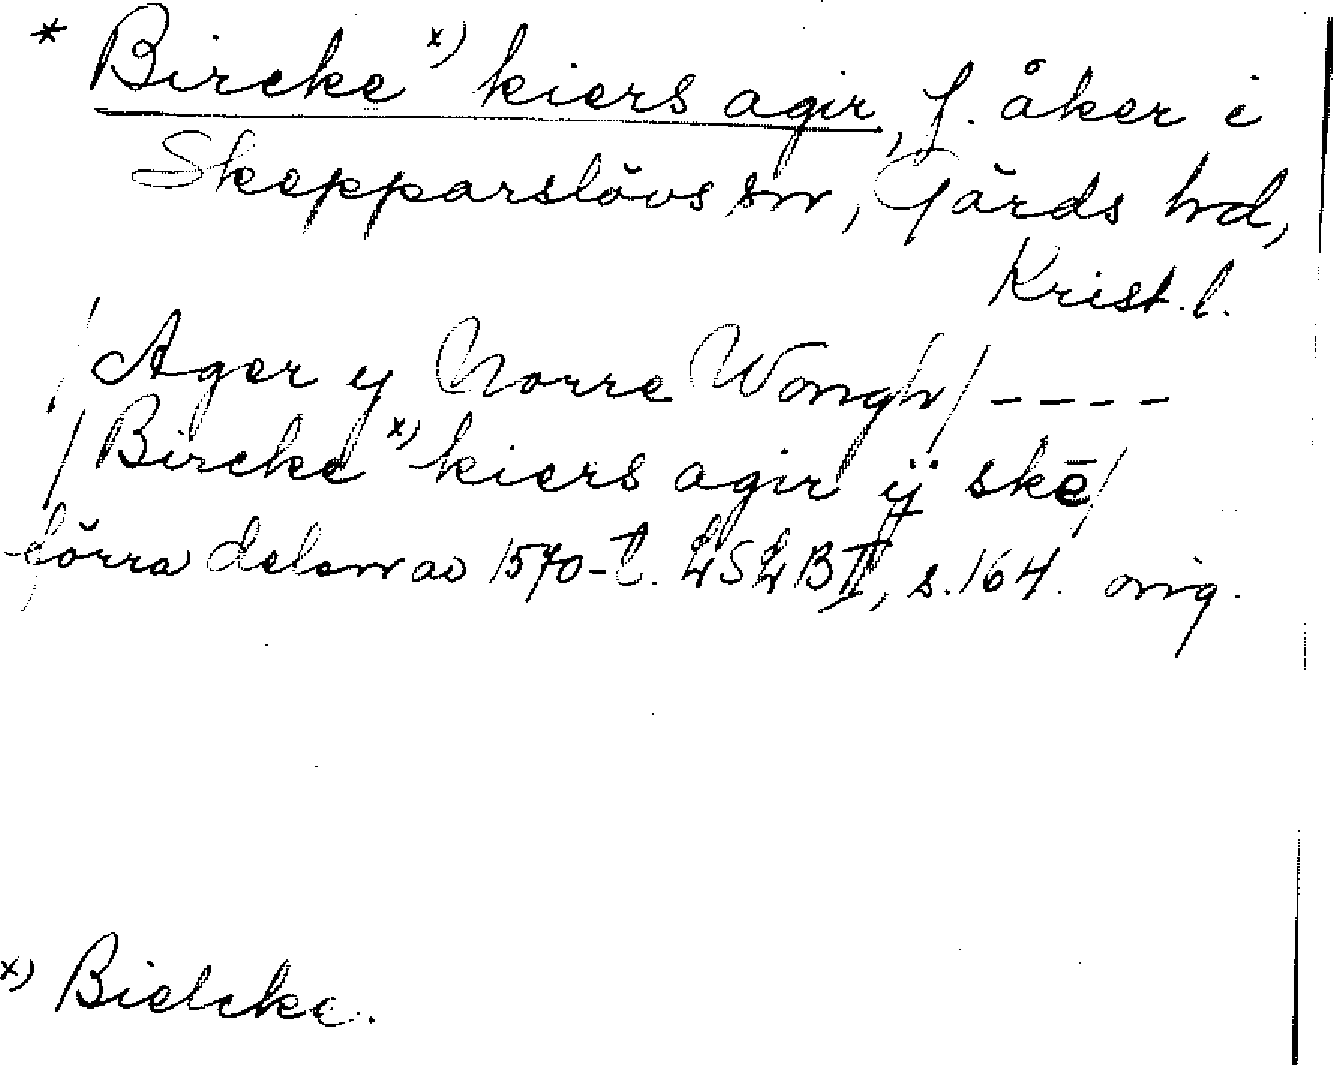 * Bircke x) kiers agir, f. åker i
Skepparslövs sn, Gärds hd,
Krist. l.
/Ager y Norre Wongh/ ----
/Bircke x) kiers agir ÿ skē/
förra delen av 1570-t. LSLB II, s. 164. orig.
x) Bielcke.